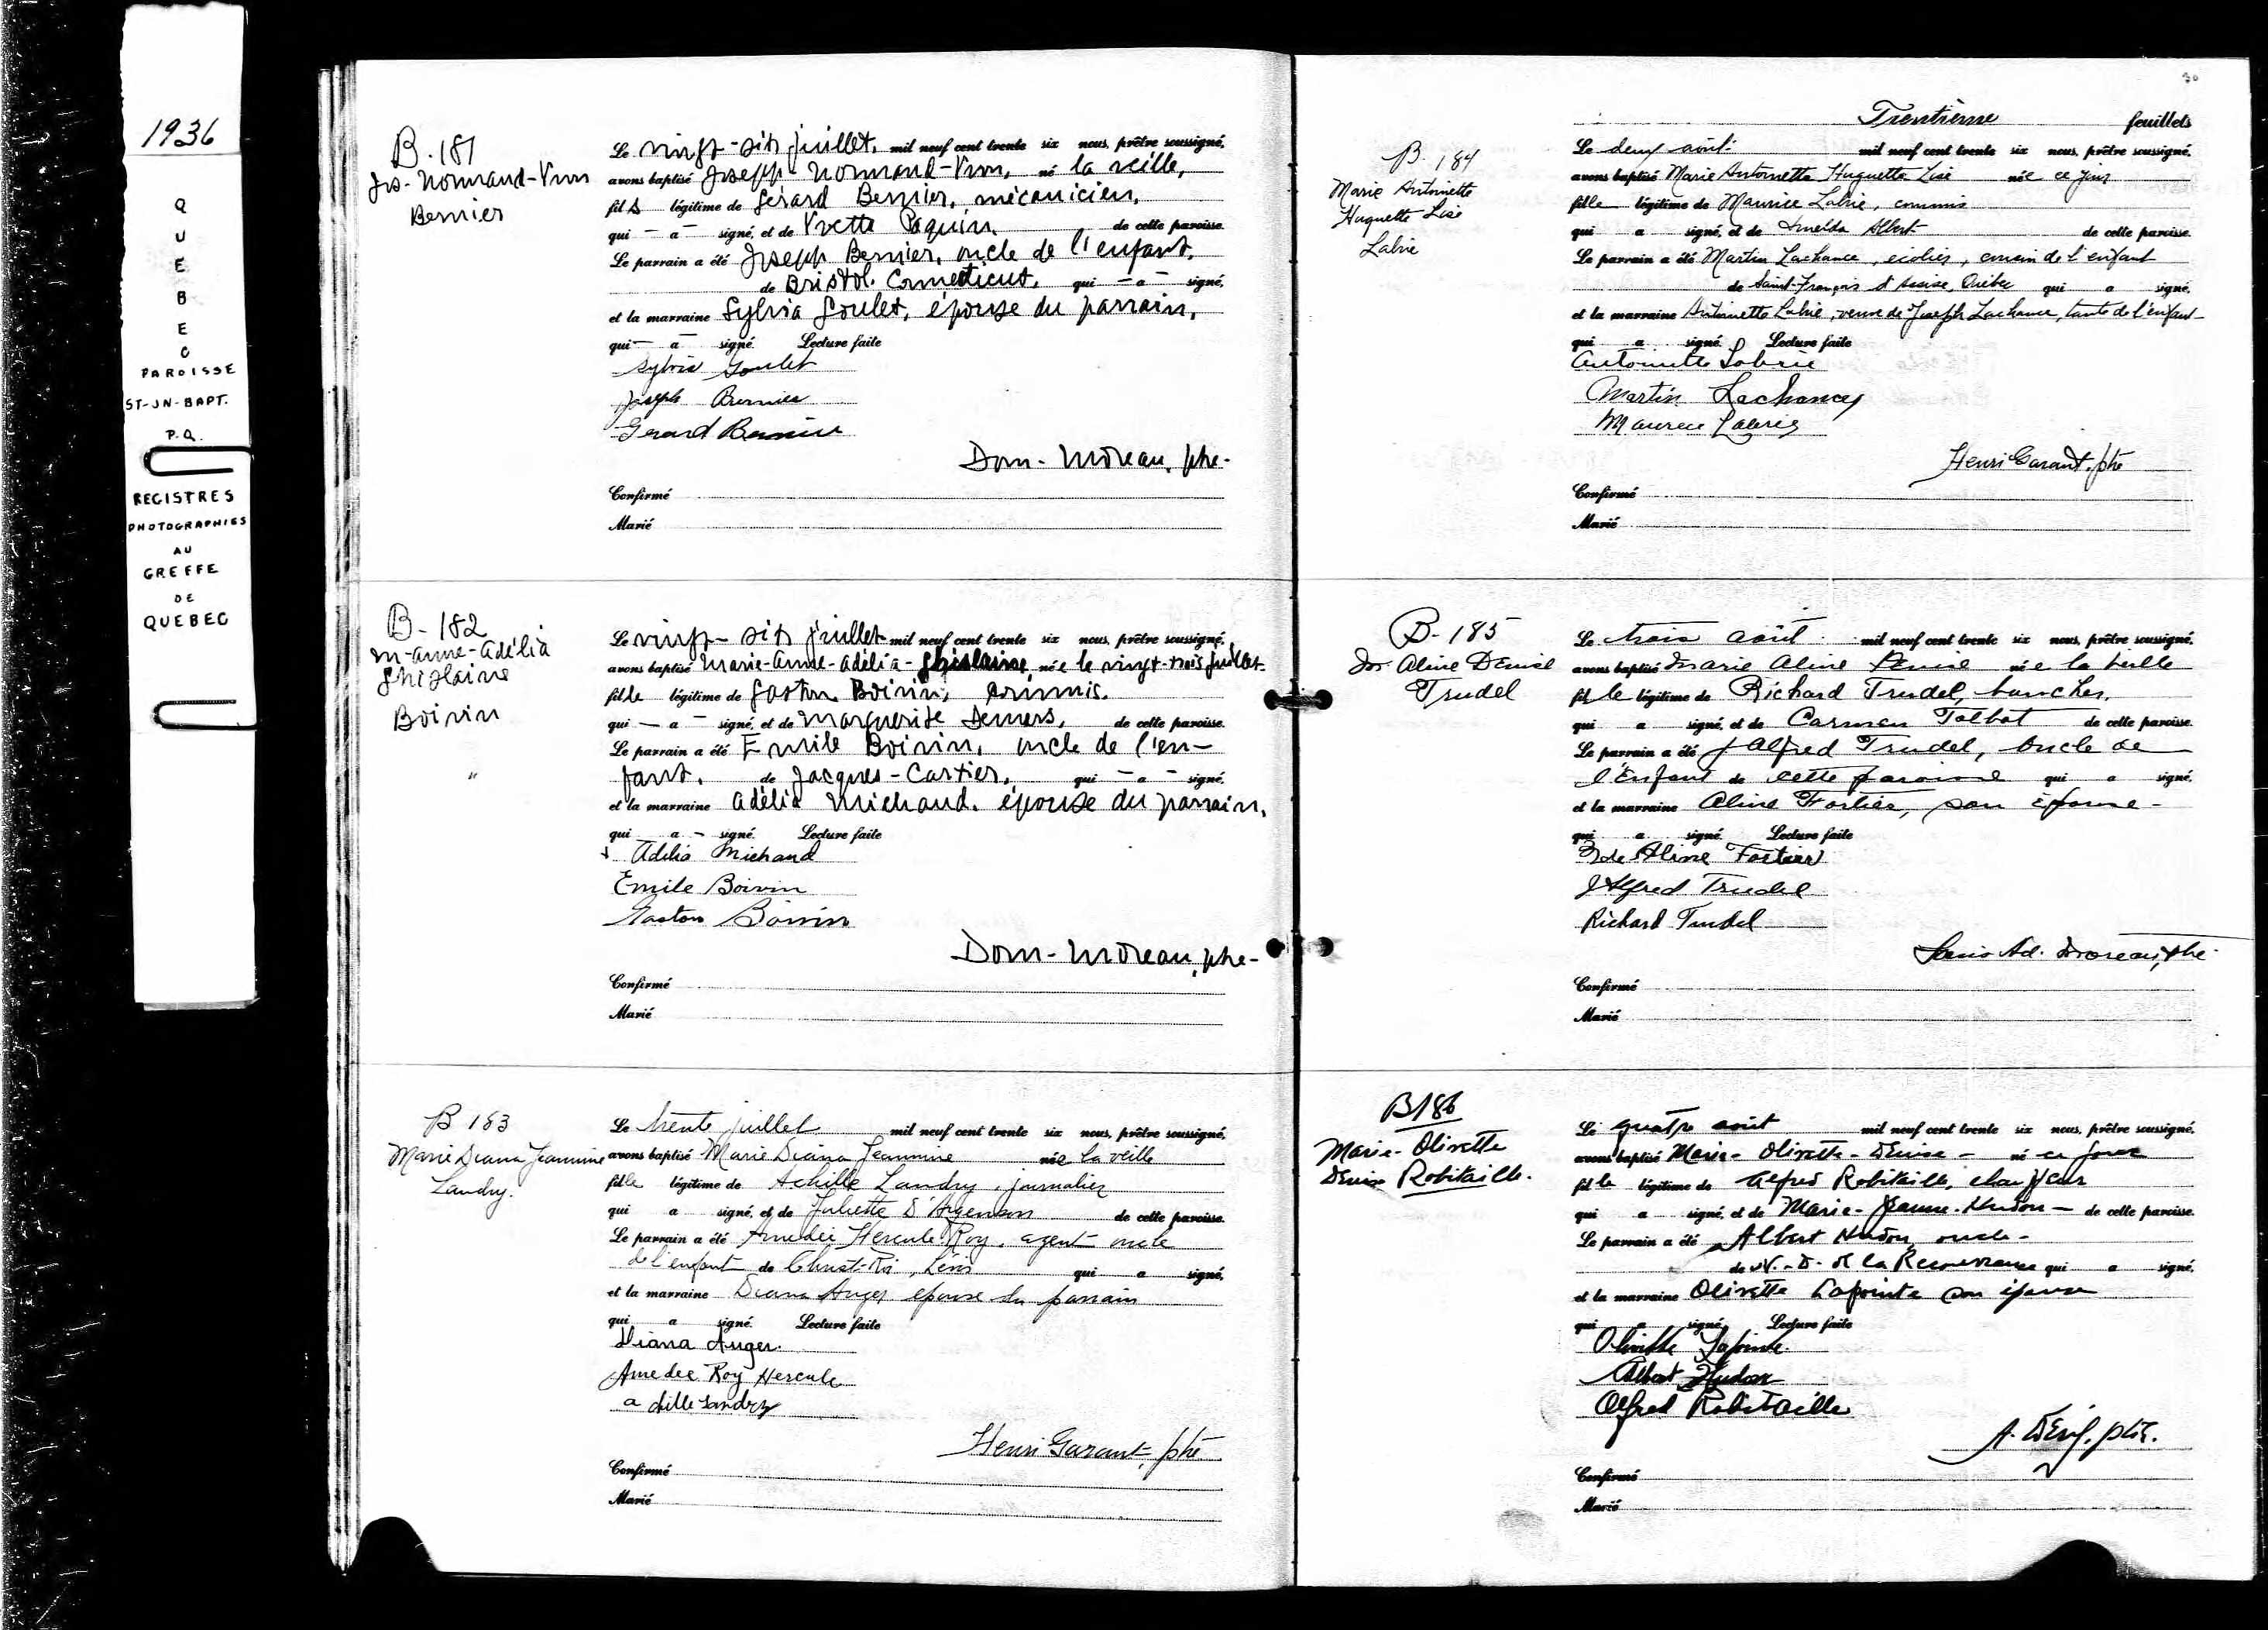 1936
QUEBEC
PAROISSE
ST-JN-BAPT.
P.Q.
REGISTRES
PHOTOGRAPHIES
AU
GREFFE
DE
QUEBEC
B.181
Jos-Normand-Yvon
Bernier
Le vingt-six juillet, mil neuf cent trente six nous, prêtre soussigné,
avons baptisé Joseph Normand-Yvon, né la veille,
fils légitime de Gérard Bernier, mécanicien,
qui - a - signé, et de Yvette Paquin, de cette paroisse.
Le parrain a été Joseph Bernier, oncle de l'enfant,
de Bristol, Conneticut, qui - a - signé,
et la marraine Sylvia Goulet, épouse du parrain,
qui - a - signé. Lecture faite
Sylvia Goulet
Joseph Bernier
Gerard Bernier
Dom-Moreau, ptre-
Confirmé
Marié
B-182
M-Anne-Adélia
Ghislaine
Boivin
Le vingt-six juillet mil neuf cent trente six nous, prêtre soussigné,
avons baptisé Marie-Anne-Adélia-Ghislaine, née le vingt-trois juillet-
fille légitime de Gaston Boivin, commis,
qui - a - signé, et de Marguerite Demers, de cette paroisse.
Le parrain a été Emile Boivin, oncle de l'en-
fant, de Jacques-Cartier, qui - a - signé,
et la marraine Adélia Michaud, épouse du parrain,
qui a - signé. Lecture faite
Adélia Michaud
Emile Boivin
Gaston Boivin
Dom-Moreau, ptre-
Confirmé
Marié
B 183
Marie Diana Jeannine
Landry.
Le trente juillet mil neuf cent trente six nous, prêtre soussigné,
avons baptisé Marie Diana Jeannine née la veille
fille légitime de Achille Landry, journalier
qui a signé, et de Juliette D'Argenson de cette paroisse.
Le parrain a été Amedée Hercule Roy, agent oncle
de l'enfant de Christ-Roi, Lévis qui a signé,
et la marraine Diana Auger épouse du parrain
qui a signé. Lecture faite
Diana Auger.
Amedee Roy Hercule
achille Landry
Henri Garant, ptre
Confirmé
Marié
30
Trentième feuillets
B. 184
Marie Antoinette
Huguette Lise
Labrie
Le deux août mil neuf cent trente six nous, prêtre soussigné,
avons baptisé Marie Antoinette Huguette Lise née ce jour
fille légitime de Maurice Labrie, commis
qui a signé, et de Imelda Albert de cette paroisse.
Le parrain a été Martin Lachance, écolier, cousin de l'enfant
de Saint-François d'Assise, Québec qui a signé,
et la marraine Antoinette Labrie, veuve de Joseph Lachance, tante de l'enfant-
qui a signé. Lecture faite
Antoinette Labrie
Martin Lachance
Maurice Labrie
Henri Garant, ptre
Confirmé
Marié
B-185
Aline Denise
Trudel
Le trois août mil neuf cent trente six nous, prêtre soussigné,
avons baptisé Marie Aline Denise née la veille
fille légitime de Richard Trudel, boucher,
qui a signé, et de Carmen Talbot de cette paroisse.
Le parrain a été J Alfred Trudel, oncle de
l'Enfant de cette paroisse qui a signé,
et la marraine Aline Fortier, son épouse-
qui a signé. Lecture faite
Aline Fortier
J Alfred Trudel
Richard Trudel
Moreau, ptre
Confirmé
Marié
B186
Marie-Olivette
Denise Robitaille.
Le quatre août mil neuf cent trente six nous, prêtre soussigné,
avons baptisé Marie-Olivette-Denise- né ce jour
fille légitime de Alfred Robitaille, chauffeur
qui a signé, et de Marie-Jeanne-Hudon- de cette paroisse.
Le parrain a été Albert Hudon, oncle-
de N.-D. de la Recouvrance qui a signé,
et la marraine Olivette Lapointe son épouse
qui a signé. Lecture faite
Olivette Lapointe.
Albert Hudon
Alfred Robitaille
ptre.
Confirmé
Marié